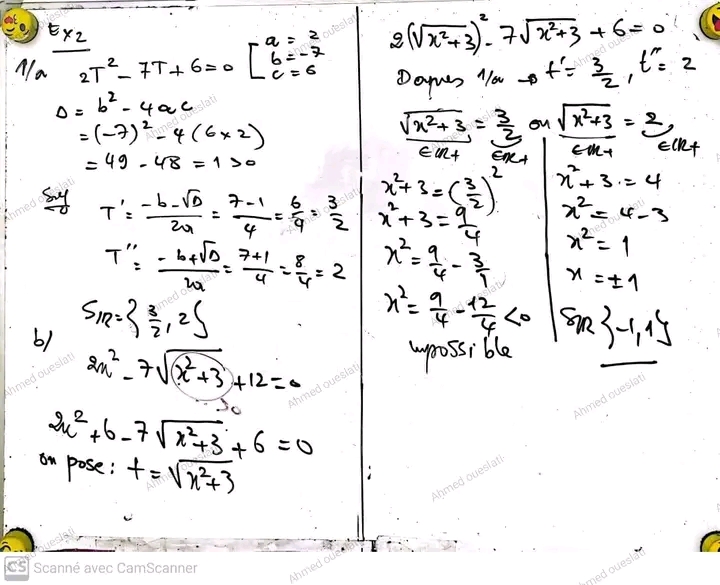 Ex2
1/a 2T² - 7T + 6 = 0 [ a = 2
b = -7
c = 6
Δ = b² - 4ac
= (-7)² - 4(6×2)
= 49 - 48 = 1 > 0
T' = (-b-√Δ)/2a = (7-1)/4 = 6/4 = 3/2
T'' = (-b+√Δ)/2a = (7+1)/4 = 8/4 = 2
SIR = {3/2, 2}
b/
2x² - 7√(x²+3) + 12 = 0
>0
2x² + 6 - 7√(x²+3) + 6 = 0
on pose : t = √(x²+3)
2(√(x²+3))² - 7√(x²+3) + 6 = 0
Dapres 1/a → t' = 3/2, t'' = 2
√(x²+3) = 3/2 ou √(x²+3) = 2
∈IR+ ∈IR+ ∈IR+ ∈IR+
x² + 3 = (3/2)²
x² + 3 = 9/4
x² = 9/4 - 3/1
x² = 9/4 - 12/4 < 0
impossible
x² + 3 = 4
x² = 4 - 3
x² = 1
x = ±1
SIR {-1, 1}
Ahmed oueslati
CS Scanné avec CamScanner